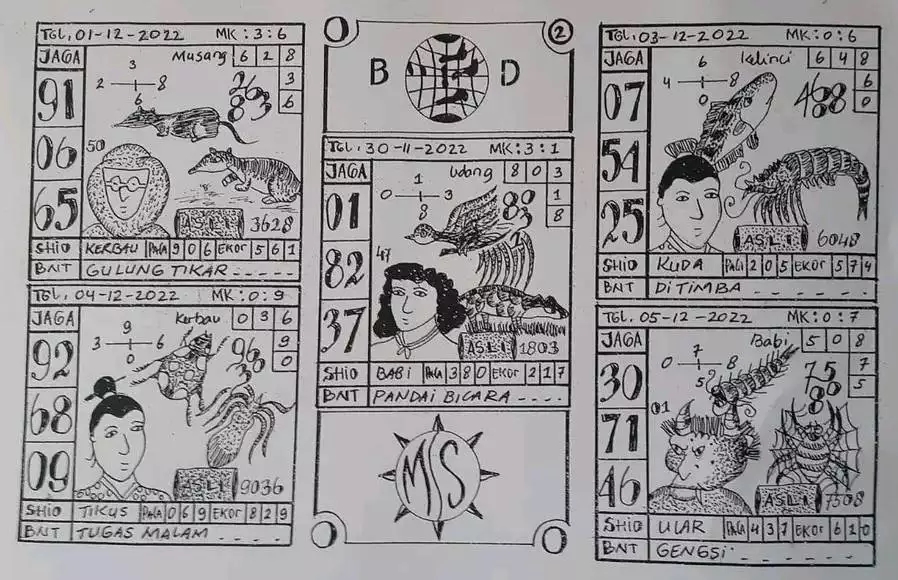 TGL, 01-12-2022 MK : 3 : 6
JAGA
91
06
65
Musang 6 2 8
3
6
3
2 8
6
50
ASLI 3628
SHIO KERBAU PALA 9 0 6 EKOR 5 6 1
BNT GULUNG TIKAR - - - - -
TGL, 04-12-2022 MK : 0 : 9
JAGA
92
68
09
Kerbau 0 3 6
9
0
9
3 6
0
ASLI 9036
SHIO TIKUS PALA 0 6 9 EKOR 8 2 9
BNT TUGAS MALAM - - - -
2
B D
TGL, 30-11-2022 MK : 3 : 1
JAGA
01
82
37
Udang 8 0 3
1
8
1
0 3
8
47
ASLI 1803
SHIO BABI PALA 3 8 0 EKOR 2 1 7
BNT PANDAI BICARA - - - -
MS
TGL, 03-12-2022 MK : 0 : 6
JAGA
07
54
25
kelinci 6 4 8
6
0
6
4 8
0
468
ASLI 6048
SHIO KUDA PALA 2 0 5 EKOR 5 7 4
BNT DITIMBA - - - - - -
TGL, 05-12-2022 MK : 0 : 7
JAGA
30
71
46
Babi 5 0 8
7
5
7
0 8
5
01
ASLI 7508
SHIO ULAR PALA 4 3 7 EKOR 6 2 0
BNT GENGSI - - - - - -